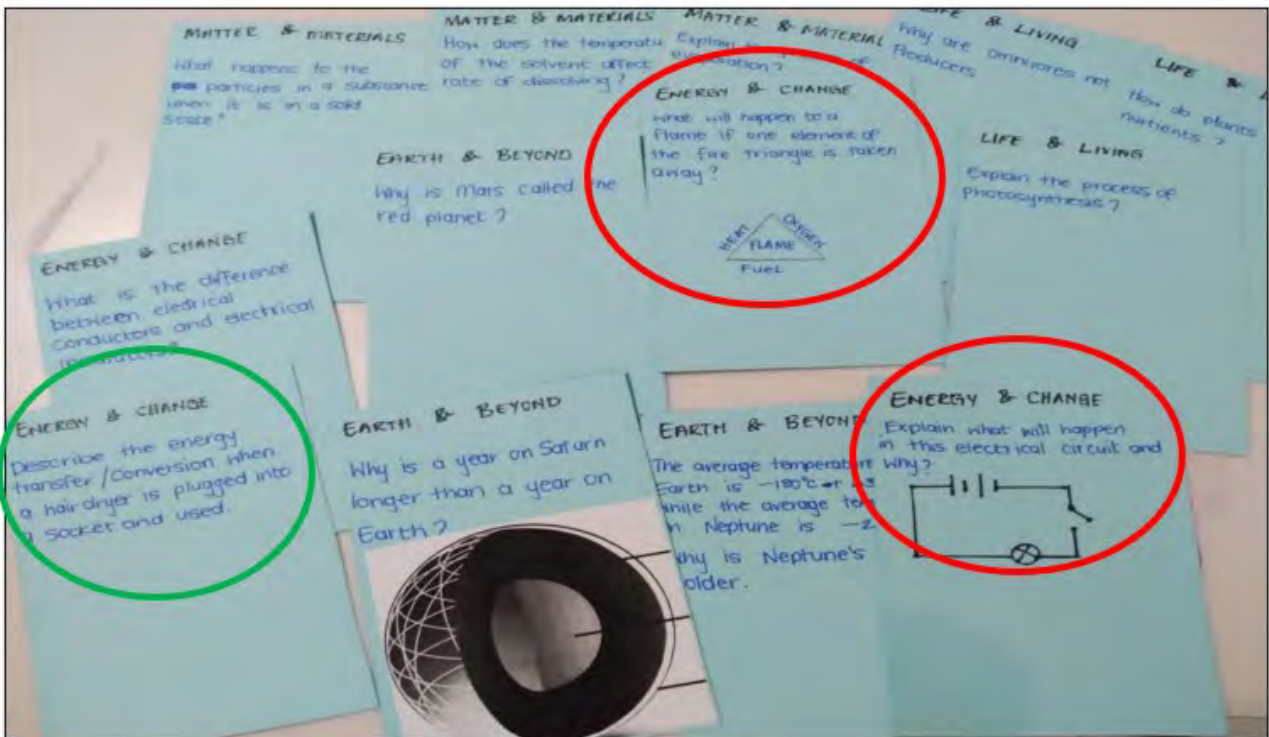 MATTER & MATERIALS
What happens to the
particles in a substance
when it is in a solid
state?
MATTER & MATERIALS
How does the temperatu
of the solvent affect
rate of dissolving?
MATTER & MATERIAL
Explain of
evaporation?
LIFE & LIVING
Why are omnivores not
Producers
LIFE &
How do plants
nutrients?
EARTH & BEYOND
Why is Mars called the
red planet?
ENERGY & CHANGE
What will happen to a
flame if one element of
the fire triangle is taken
away?
HEAT
OXYGEN
FLAME
FUEL
LIFE & LIVING
Explain the process of
photosynthesis?
ENERGY & CHANGE
What is the difference
between electrical
conductors and electrical
insulators?
ENERGY & CHANGE
Describe the energy
transfer/conversion when
a hairdryer is plugged into
a socket and used.
EARTH & BEYOND
Why is a year on Saturn
longer than a year on
Earth?
EARTH & BEYOND
The average temperature
Earth is -180°C
while the average te
Neptune is -2
why is Neptune's
older.
ENERGY & CHANGE
Explain what will happen
in this electrical circuit and
why?